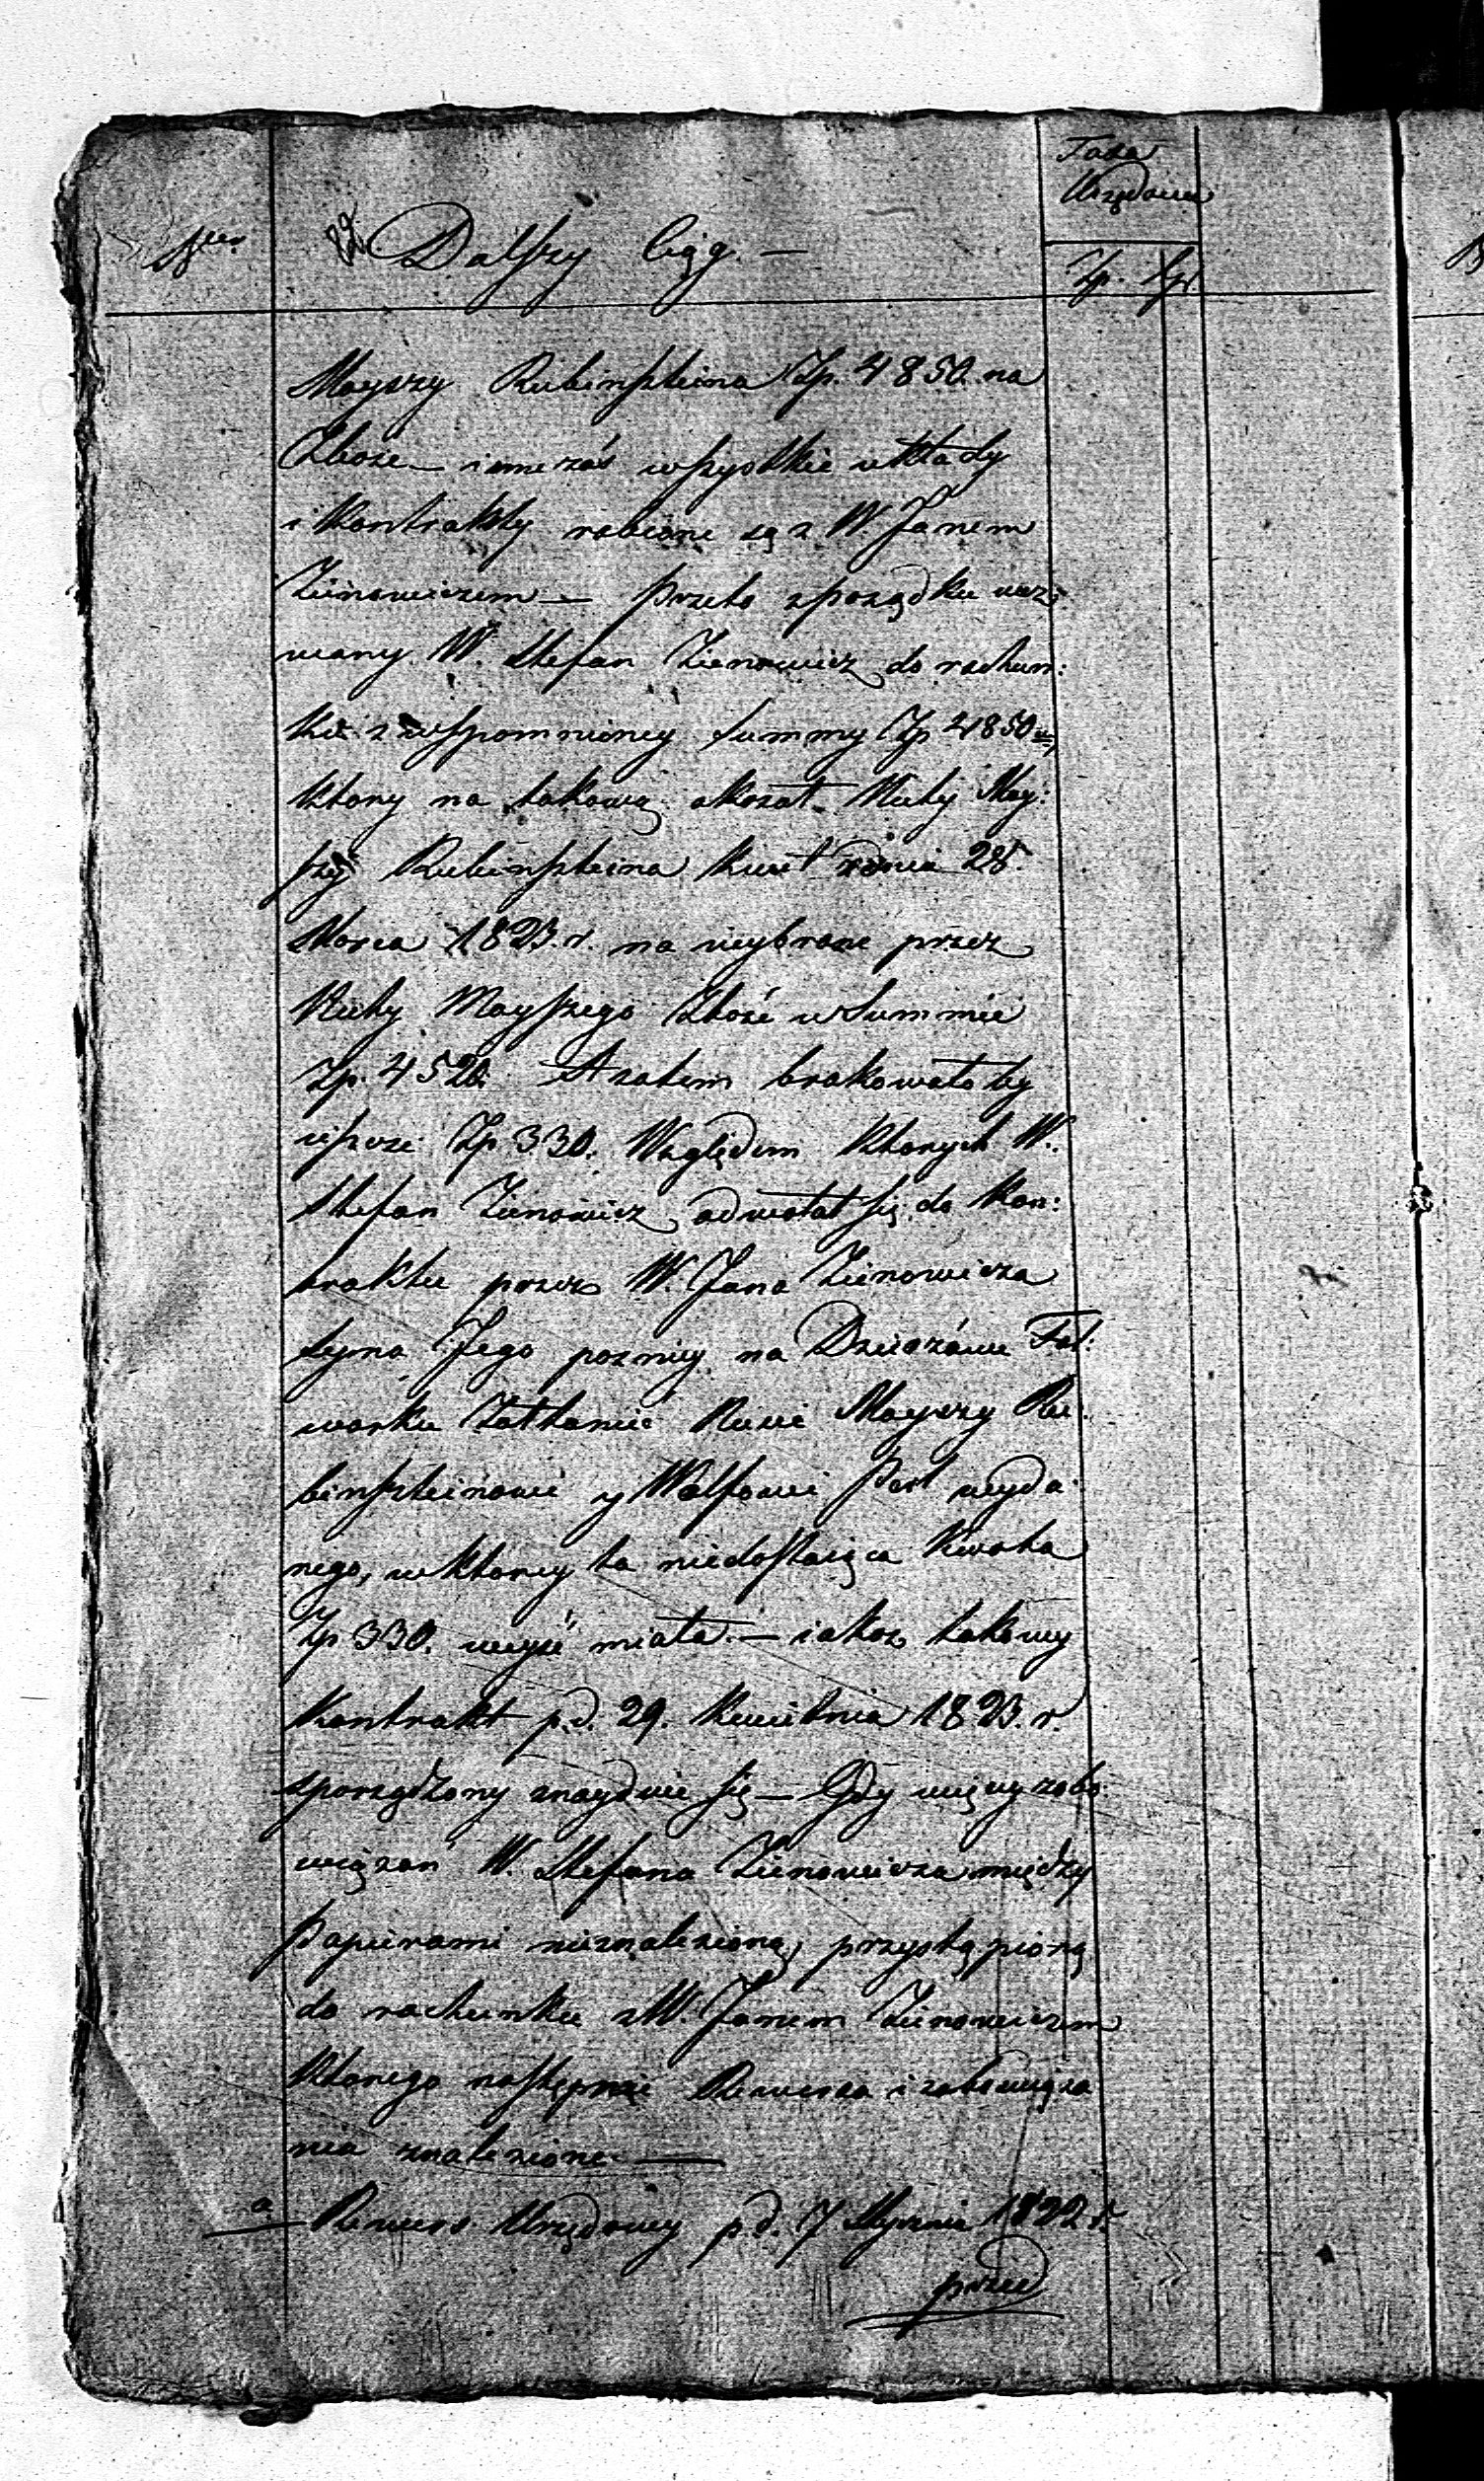 Taxa
Urzędowa
Nro 82 Dalszy Ciąg —
Zp. gr.
Moyszy Rubinszteina Zp. 4850. na
Zboże — inne zaś wszystkie układy
i Kontrakty robione są z W. Janem
Zienowiczem — przeto z porządku wez:
wany W. Stefan Zienowicz do rachun:
ku z wspomnioney Summy Zp 4850
ktory na takową okazał Ruby Moy:
szy Rubinszteina kwit z dnia 28.
Marca 1823. r. na wybrane przez
Ruby Moyszego Zboże w Summie
Zp. 4520. A zatem brakowało by
ieszcze Zp 330. Względem ktorych W.
Stefan Zienowicz odwołał się do Kon:
traktu przez W. Jana Zienowicza
syna Jego pozniey na Dzierżawe Fol:
warku Moyszy Ru:
binszteinowi y Wolfowi wyda:
nego, w ktory ta niedostaiąca Kwota
Zp 330. weyść miała. — iakoż takowy
Kontrakt p. d. 29. Kwietnia 1823. r.
sporządzony znayduie się — Gdy więcey zobo:
wiązań W. Stefana Zienowicza między
Papierami nieznaleziono, przystąpiono
do rachunku z W. Janem Zienowiczem
ktorego następnie Rewersa i zobowiąza
nia znalezione. —
a Rewers Urzędowy p. d. 7 Stycznia 1822 r.
przed